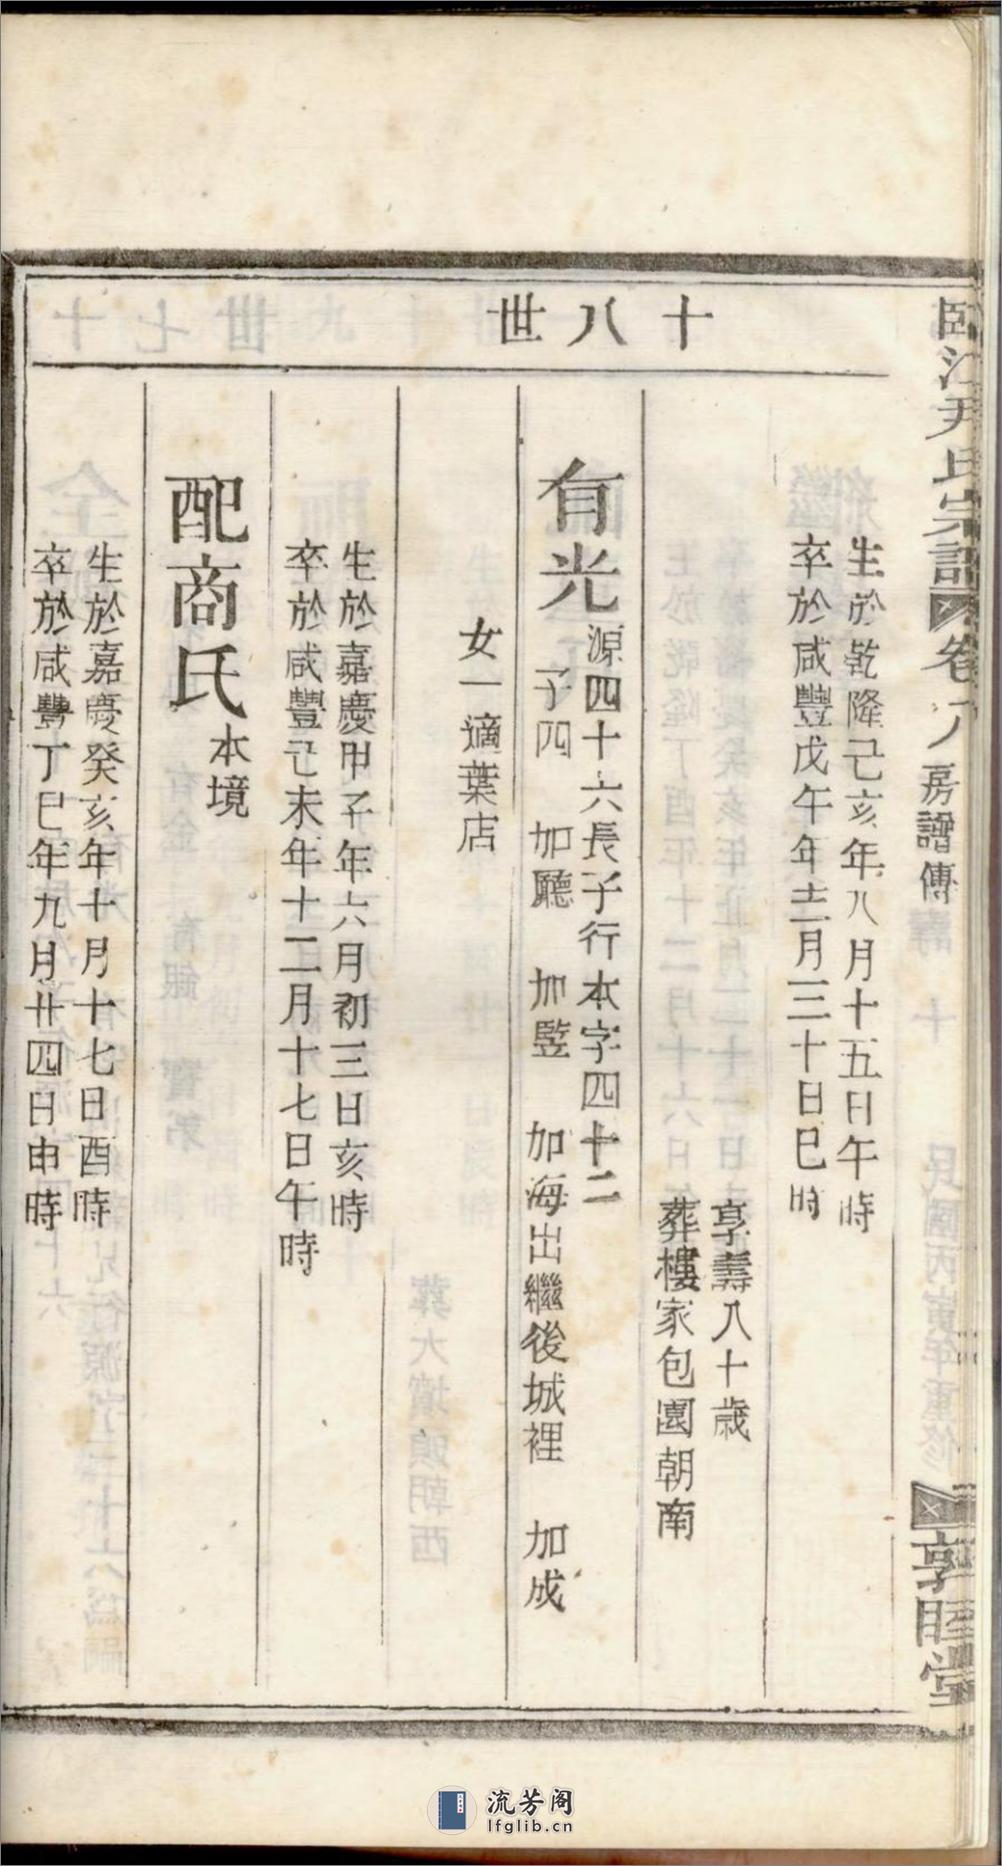 臨江尹氏宗譜 卷八 房譜傳
敦睦堂
十八世
生於乾隆己亥年八月十五日午時
卒於咸豐戊午年十二月三十日巳時
享壽八十歲
葬樓家包園朝南
有光
源四十六長子行本字四十二
子四 加廳 加監 加海出繼後城裡 加成
女一適葉店
生於嘉慶甲子年六月初三日亥時
卒於咸豐己未年十二月十七日午時
配商氏本境
生於嘉慶癸亥年十月十七日酉時
卒於咸豐丁巳年九月廿四日申時
流芳阁
lfglib.cn